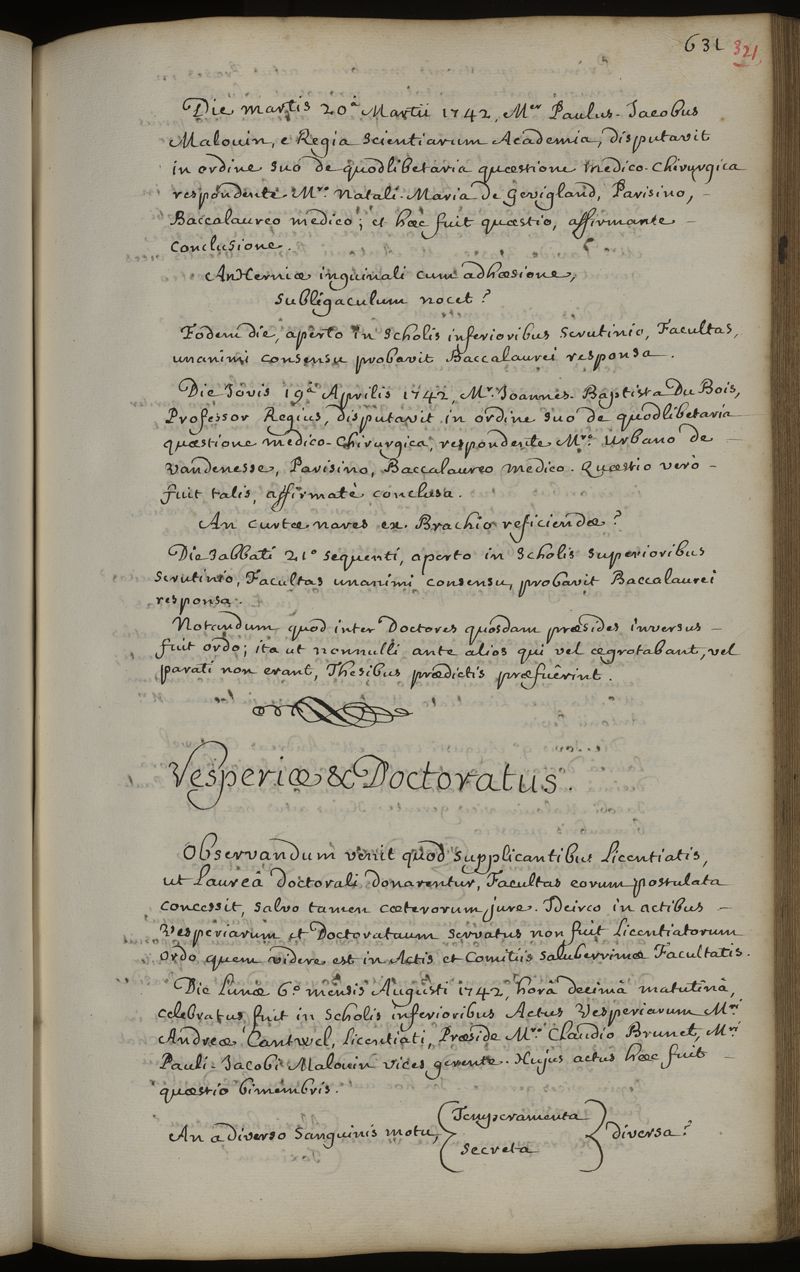 631 321
Die martis 20.â Martii 1742, Mer Paulus-Jacobus
Malouin, e Regia Scientiarum Academia, disputavit
in ordine suo de quodlibetaria quæstione medico-Chirurgica
respondente Mro. Natali-Maria de Gevigland, Parisino, -
Baccalaureo medico; et hæc fuit quæstio, affirmante -
Conclusione.
An Herniæ inguinali cum adhæsione,
Subligaculum nocet?
Eodem die, aperto in Scholis inferioribus Scrutinio, Facultas,
unanimi consensu probavit Baccalaurei responsa.
Die Jovis 19.â Aprilis 1742, Mr. Joannes-Baptista Du Bois,
Professor Regius, disputavit in ordine suo de quodlibetaria
quæstione medico-Chirurgica, respondente Mro. Urbano de -
Vandenesse, Parisino, Baccalaureo medico. Quæstio verò -
fuit talis, affirmatè conclusa.
An curtæ nares ex Brachio reficiendæ?
Die Sabbati 21º sequenti, aperto in Scholis Superioribus
Scrutinio, Facultas unanimi consensu, probavit Baccalaurei
responsa.
Notandum quod inter Doctores quosdam præsides inversus -
fuit ordo; ita ut nonnulli ante alios qui vel ægrotabant, vel
parati non erant, Thesibus prædictis præfuêrint.
Vesperiæ & Doctoratus.
Observandum venit quod Supplicantibus Licentiatis,
ut Laureâ doctorali donarentur, Facultas eorum postulata
concessit, salvo tamen cæterorum jure. Idcirco in actibus -
Vesperiarum et Doctoratuum servatus non fuit Licentiatorum
Ordo quem videre est in Actis et Comitiis Saluberrimæ Facultatis.
Die Lunæ 6º mensis Augusti 1742, horâ decimâ matutinâ,
celebratus fuit in Scholis inferioribus Actus Vesperiarum Mri
Andreæ Cantwel, Licentiati, Præside Mro. Claudio Brunet, Mri
Pauli-Jacobi Malouin vices gerente. Hujus actus hæc fuit -
quæstio bimembris.
An a diverso Sanguinis motu, { Temperamenta
Secreta } diversa?